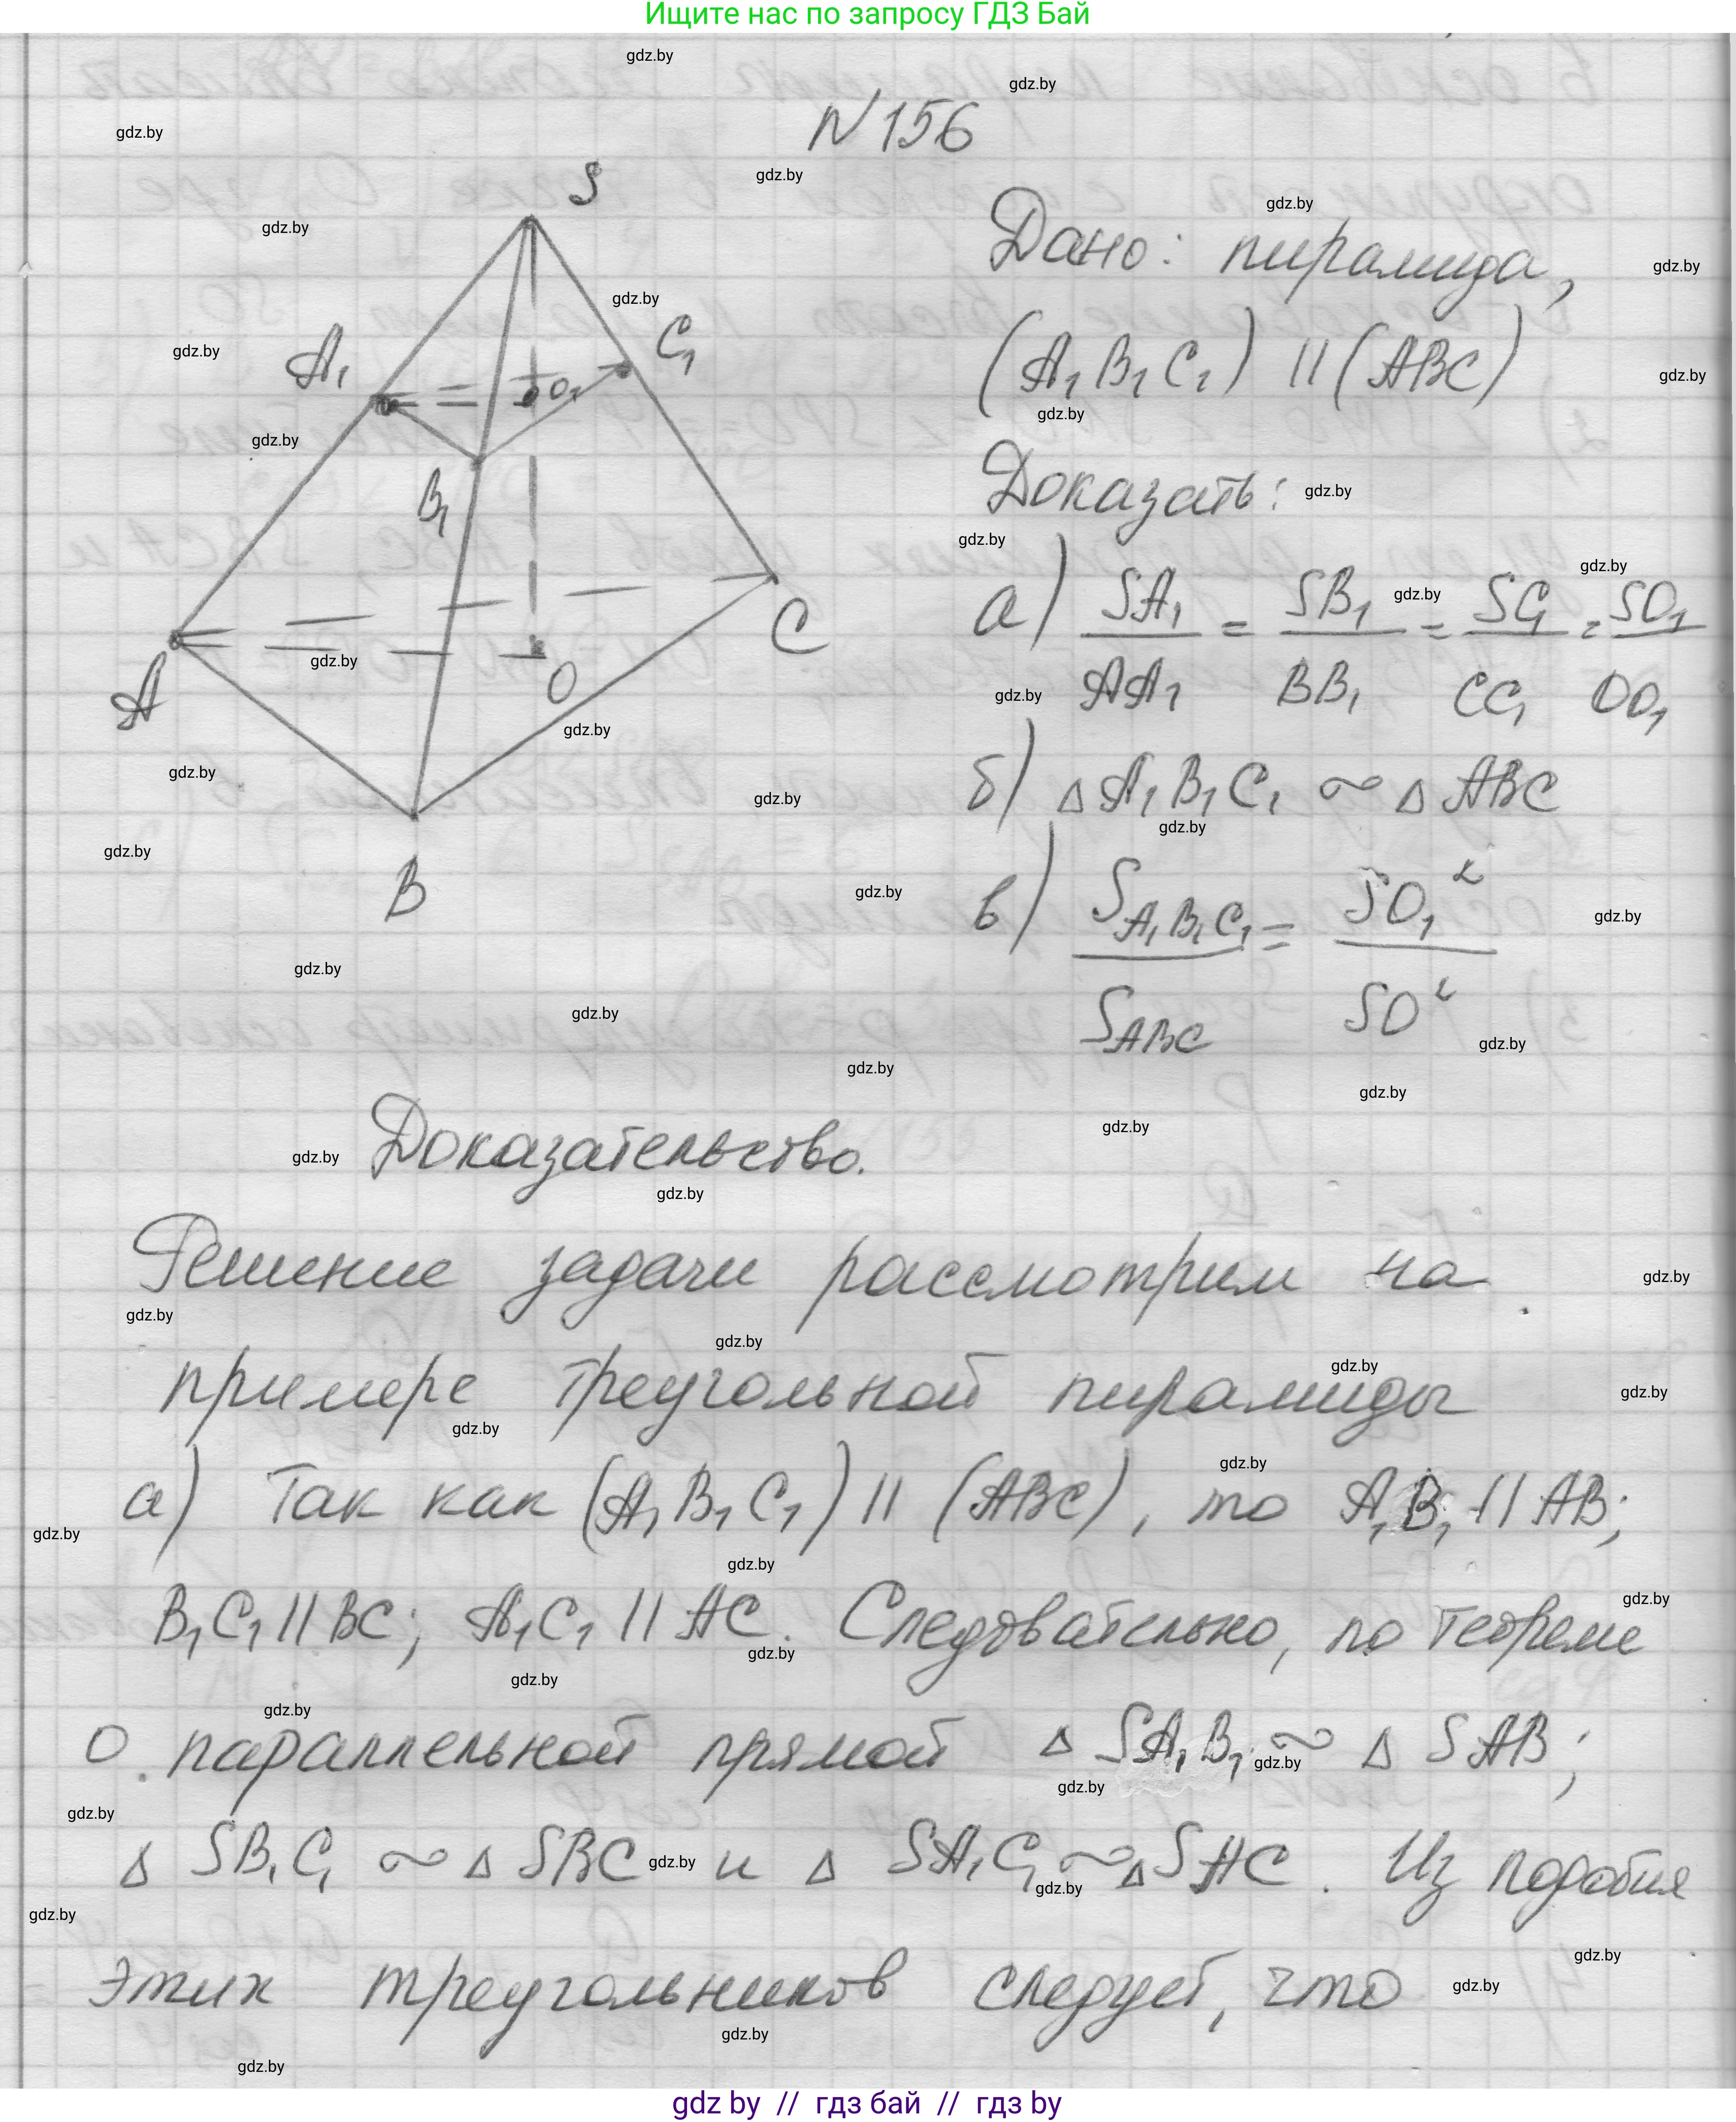 Ищите нас по запросу ГДЗ Бай
N 156
S
A₁
C₁
O₁
B₁
A
O
C
B
Дано: пирамида,
(A₁B₁C₁) || (ABC)
Доказать:
а) SA₁/AA₁ = SB₁/BB₁ = SC₁/CC₁ = SO₁/OO₁
б) △ A₁B₁C₁ ~ △ ABC
в) S_A₁B₁C₁/S_ABC = SO₁²/SO²
Доказательство.
Решение задачи рассмотрим на
примере треугольной пирамиды
а) Так как (A₁B₁C₁) || (ABC), то A₁B₁ || AB;
B₁C₁ || BC; A₁C₁ || AC. Следовательно, по теореме
о параллельной прямой △ SA₁B₁ ~ △ SAB;
△ SB₁C₁ ~ △ SBC и △ SA₁C₁ ~ △ SAC. Из подобия
этих треугольников следует, что
gdz.by
gdz by // гдз бай // гдз by